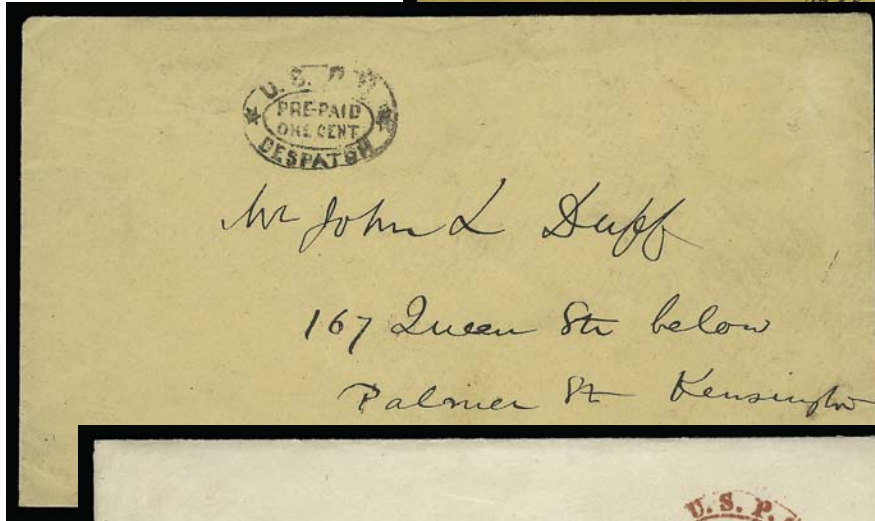 U. S. P. O.
PRE-PAID
ONE CENT
DESPATCH
Mr John L Duff
167 Queen Str below
Palmer St Kensington
U. S. P.